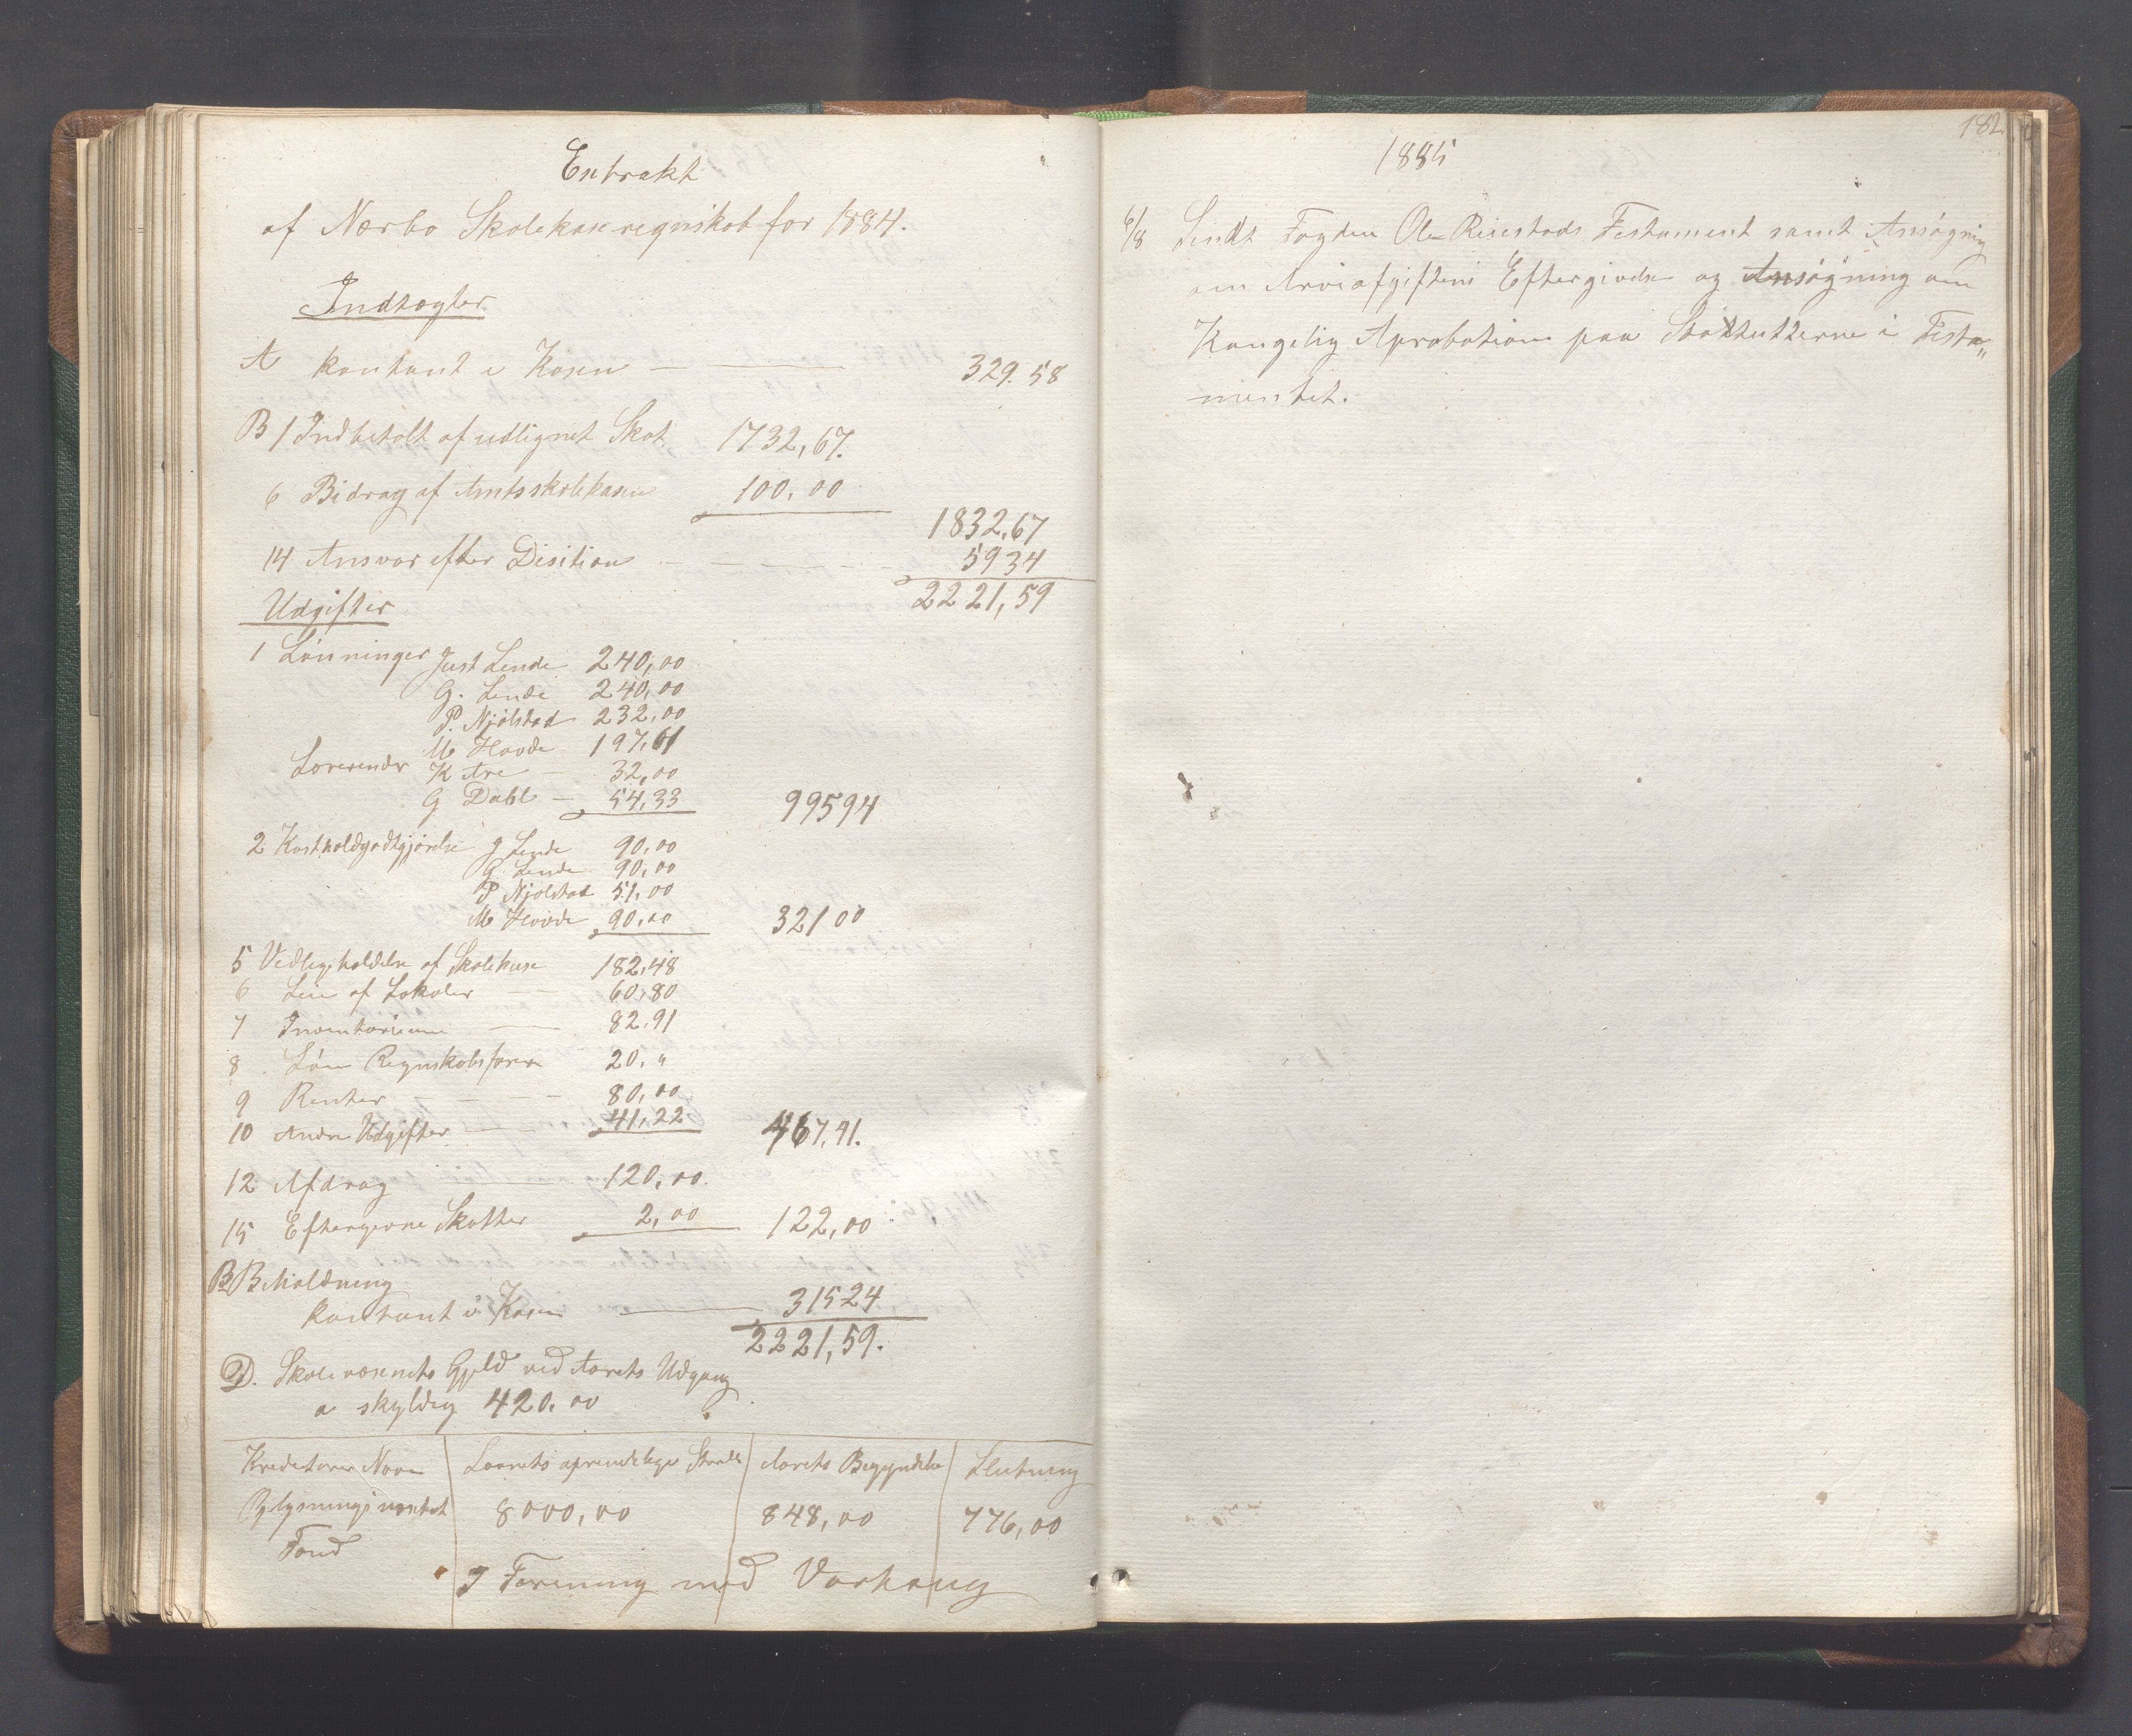 Extrakt
af Nærbø Skolekaseregnskab for 1884.
Indtægter
A kontant i Kasen — 329.58
B 1 Indbetalt af udlignet Skat 1732,67.
6 Bidrag af Amtsskolekasen 100,00
1832,67
14 Ansvar efter Disition 5934
2221,59
Udgifter
1 Lønninger Just Lende 240,00
G. Lende 240,00
P. Njølstad 232,00
M Hovde 197,61
Lærerender K Are — 32,00
G Dahl — 54,33 99594
2 Kostholdgodtgjørelse J Lende 90,00
G. Lende 90,00
P Njølstad 51,00
M Hovde 90,00 321 00
5 Vedligeholdelse af Skolehuse 182,48
6 Leie af Lokaler 60,80
7 Inventarium — 82,91
8 Løn Regnskabsfører 20, "
9 Renter 80,00
10 Andre Udgifter 41,22 467,41.
12 Afdrag 120,00.
15 Eftergivne Skatter 2,00 122,00
B Beholdning
kontant i Kasen — 31524
2221,59.
D. Skolevæsenets Gjeld ved Aarets Udgang
a skyldig 420.00
Kreditorer Navn Laanets oprindelige Størrelse Aarets Begyndelse Slutning
Oplysningsvæsenets 8000,00 848,00 776,00
Fond
I Forening med Varhaug
182
1885
6/8 Sendt Fogden Ole Reiestads Testament samt Ansøgning
om Arveafgiftens Eftergivelse og Ansøgning om
Kongelig Aprobation paa Statutterne i Testa„
mentet.